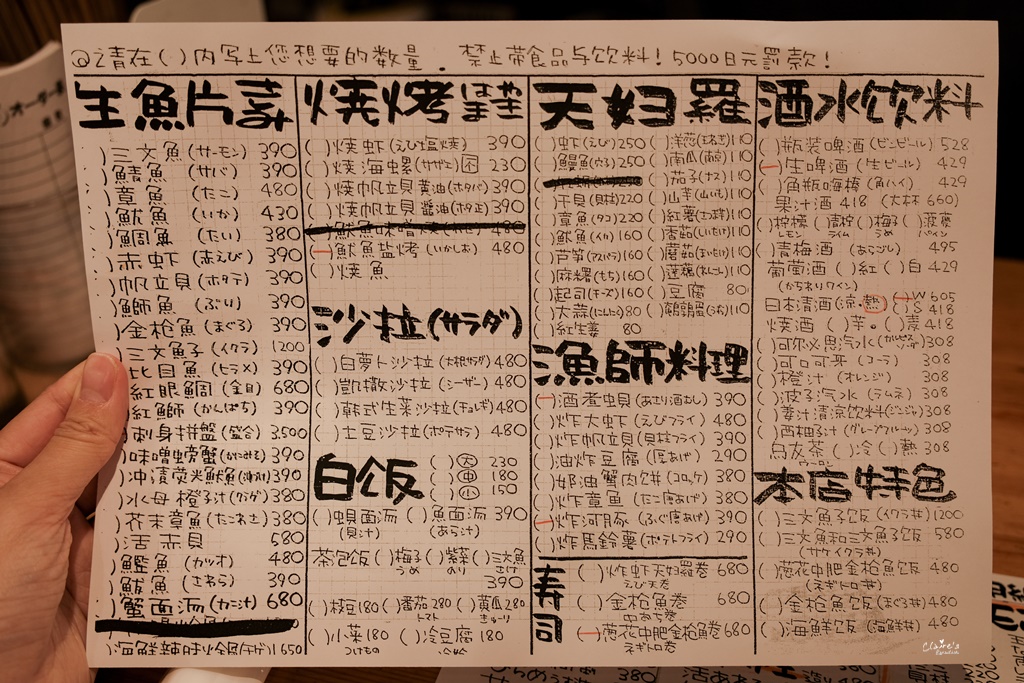 @请在( )内写上您想要的数量. 禁止带食品与饮料! 5000日元罰款!
生魚片
( )三文魚 (サーモン) 390
( )鯖魚 (サバ) 390
( )章魚 (たこ) 480
( )魷魚 (いか) 430
( )鯛魚 (たい) 380
( )赤虾 (赤えび) 390
( )帆立貝 (ホタテ) 390
( )鰤魚 (ぶり) 390
( )金槍魚 (まぐろ) 390
( )三文魚子 (イクラ) 1200
( )比目魚 (ヒラメ) 390
( )紅眼鯛 (金目) 680
( )紅鰤 (かんぱち) 390
( )刺身拼盤 (盛合) 3,500
( )味噌螃蟹 (かにみそ) 390
( )冲漬荧光魷魚 390
( )水母橙子汁 (クラゲ) 380
( )芥末章魚 (たこわさ) 380
( )活赤貝 580
( )鰹魚 (カツオ) 480
( )鮁魚 (さわら) 390
( )蟹面汤 (カニ汁) 680
1650
燒烤
( )燒虾 (えび塩焼) 390
( )燒海螺 (サザエ) 230
( )燒帆立貝黄油 (ホタバ) 390
( )燒帆立貝醬油 (ホタ正) 390
(一)魷魚盐烤 (いかしお) 480
( )燒魚
沙拉(サラダ)
( )白萝卜沙拉 (大根サラダ) 480
( )凱撒沙拉 (シーザー) 480
( )韩式生菜沙拉 (チョレギ) 480
( )土豆沙拉 (ポテサラ) 480
白饭
( )大 230
( )中 180
( )小 150
( )蛽面汤 ( )魚面汤 390
(貝汁) (あら汁)
茶包饭 ( )梅子 ( )紫菜 ( )三文魚
うめ のり さけ
390
( )枝豆180 ( )番茄280 ( )黄瓜280
トマト きゅうり
( )小菜180 ( )冷豆腐180
つけもの 冷奴
天妇羅
( )虾 (えび) 250 ( )洋葱 (玉ねぎ) 110
( )鰻魚 (穴子) 250 ( )南瓜 (南京) 110
( )茄子 (ナス) 110
( )干貝 (貝柱) 220 ( )山芋 (山いも) 110
( )章魚 (タコ) 220 ( )紅薯 110
( )魷魚 (イカ) 160 ( )香菇 (しいたけ) 110
( )芦笋 (アスパラ) 160 ( )蘑菇 (まいたけ) 110
( )麻糬 (もち) 160 ( )蓮藕 (れんこん) 110
( )起司 (チーズ) 160 ( )豆腐 80
( )大蒜 (にんにく) 80 ( )鵪鶉蛋 110
( )紅生姜 80
漁師料理
(一)酒煮蛽 (あさり酒むし) 390
( )炸大虾 (えびフライ) 480
( )炸帆立貝 (貝柱フライ) 290
( )油炸豆腐 (厚あげ) 290
( )奶油蟹肉饼 (コロッケ) 380
( )炸章魚 (たこ唐あげ) 380
(一)炸河豚 (ふぐ唐あげ) 390
( )炸馬鈴薯 (ポテトフライ) 290
寿司
( )炸虾天妇羅卷 680
えび天巻
( )金槍魚卷 680
(一)葱花中肥金槍魚卷 680
ネギトロ巻
酒水饮料
( )瓶装啤酒 (ビンビール) 528
(一)生啤酒 (生ビール) 429
( )角瓶嗨棒 (角ハイ) 429
果汁酒 418 (大杯 660)
( )檸檬 ( )青柠 ( )梅子 ( )菠萝
レモン ライム うめ パイン
( )青梅酒 495
葡萄酒 ( )紅 ( )白 429
日本清酒 (涼・熱) (一)W 605
( )S 418
燒酒 ( )芋。( )麦 418
( )可尔必思汽水 308
( )可口可乐 (コーラ) 308
( )橙汁 (オレンジ) 308
( )波子汽水 (ラムネ) 308
( )姜汁清涼饮料 308
( )西柚汁 (グレープフルーツ) 308
乌龙茶 ( )冷 ( )熱 308
ウーロン
本店特色
( )三文魚子饭 (イクラ丼) 1200
( )三文魚和三文魚子饭 580
(サケイクラ丼)
( )葱花中肥金槍魚饭 480
(ネギトロ丼)
( )金槍魚饭 (まぐろ丼) 480
( )海鮮饭 (海鮮丼) 480
Claire's